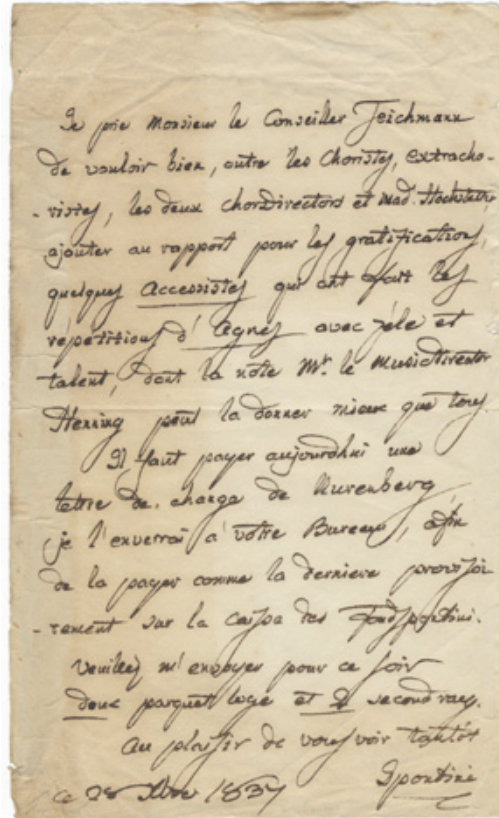 Je prie Monsieur le Conseiller Teichmann
de vouloir bien, outre les Choristes, extracho-
-ristes, les deux chordirectors et Mad.
ajouter au rapport pour les gratifications,
quelques Accessistes qui ont fait les
répétitions d'Agnes avec zèle et
talent, dont la note Mr. le Musicdirector
Henning peut la donner mieux que tous.
Il faut payer aujourdhui une
lettre de change de Nurenberg
je l'enverrai a votre Bureau, afin
de la payer comme la derniere provisoi
-rement sur la caisse des fondspontini.
Veuillez m'envoyer pour ce soir
deux parquet loge et 2 secondrang.
Au plaisir de vous voir tantôt
Spontini
ce 28 Xbre 1837